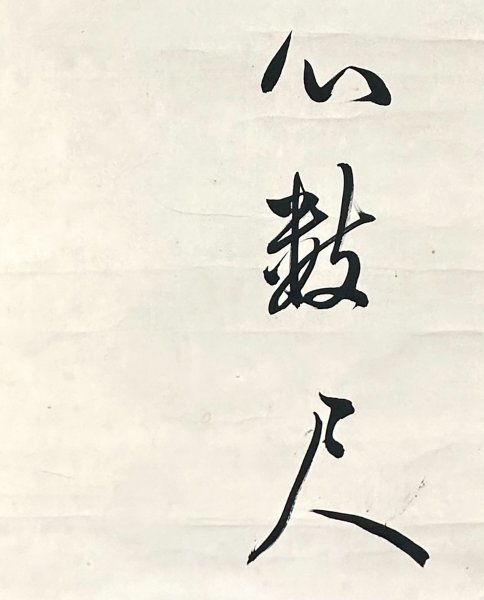 心数尺